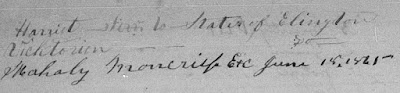 Harriet to State of Elington
Vicktorien
Mahaly Moncrief Etc June 18, 1865